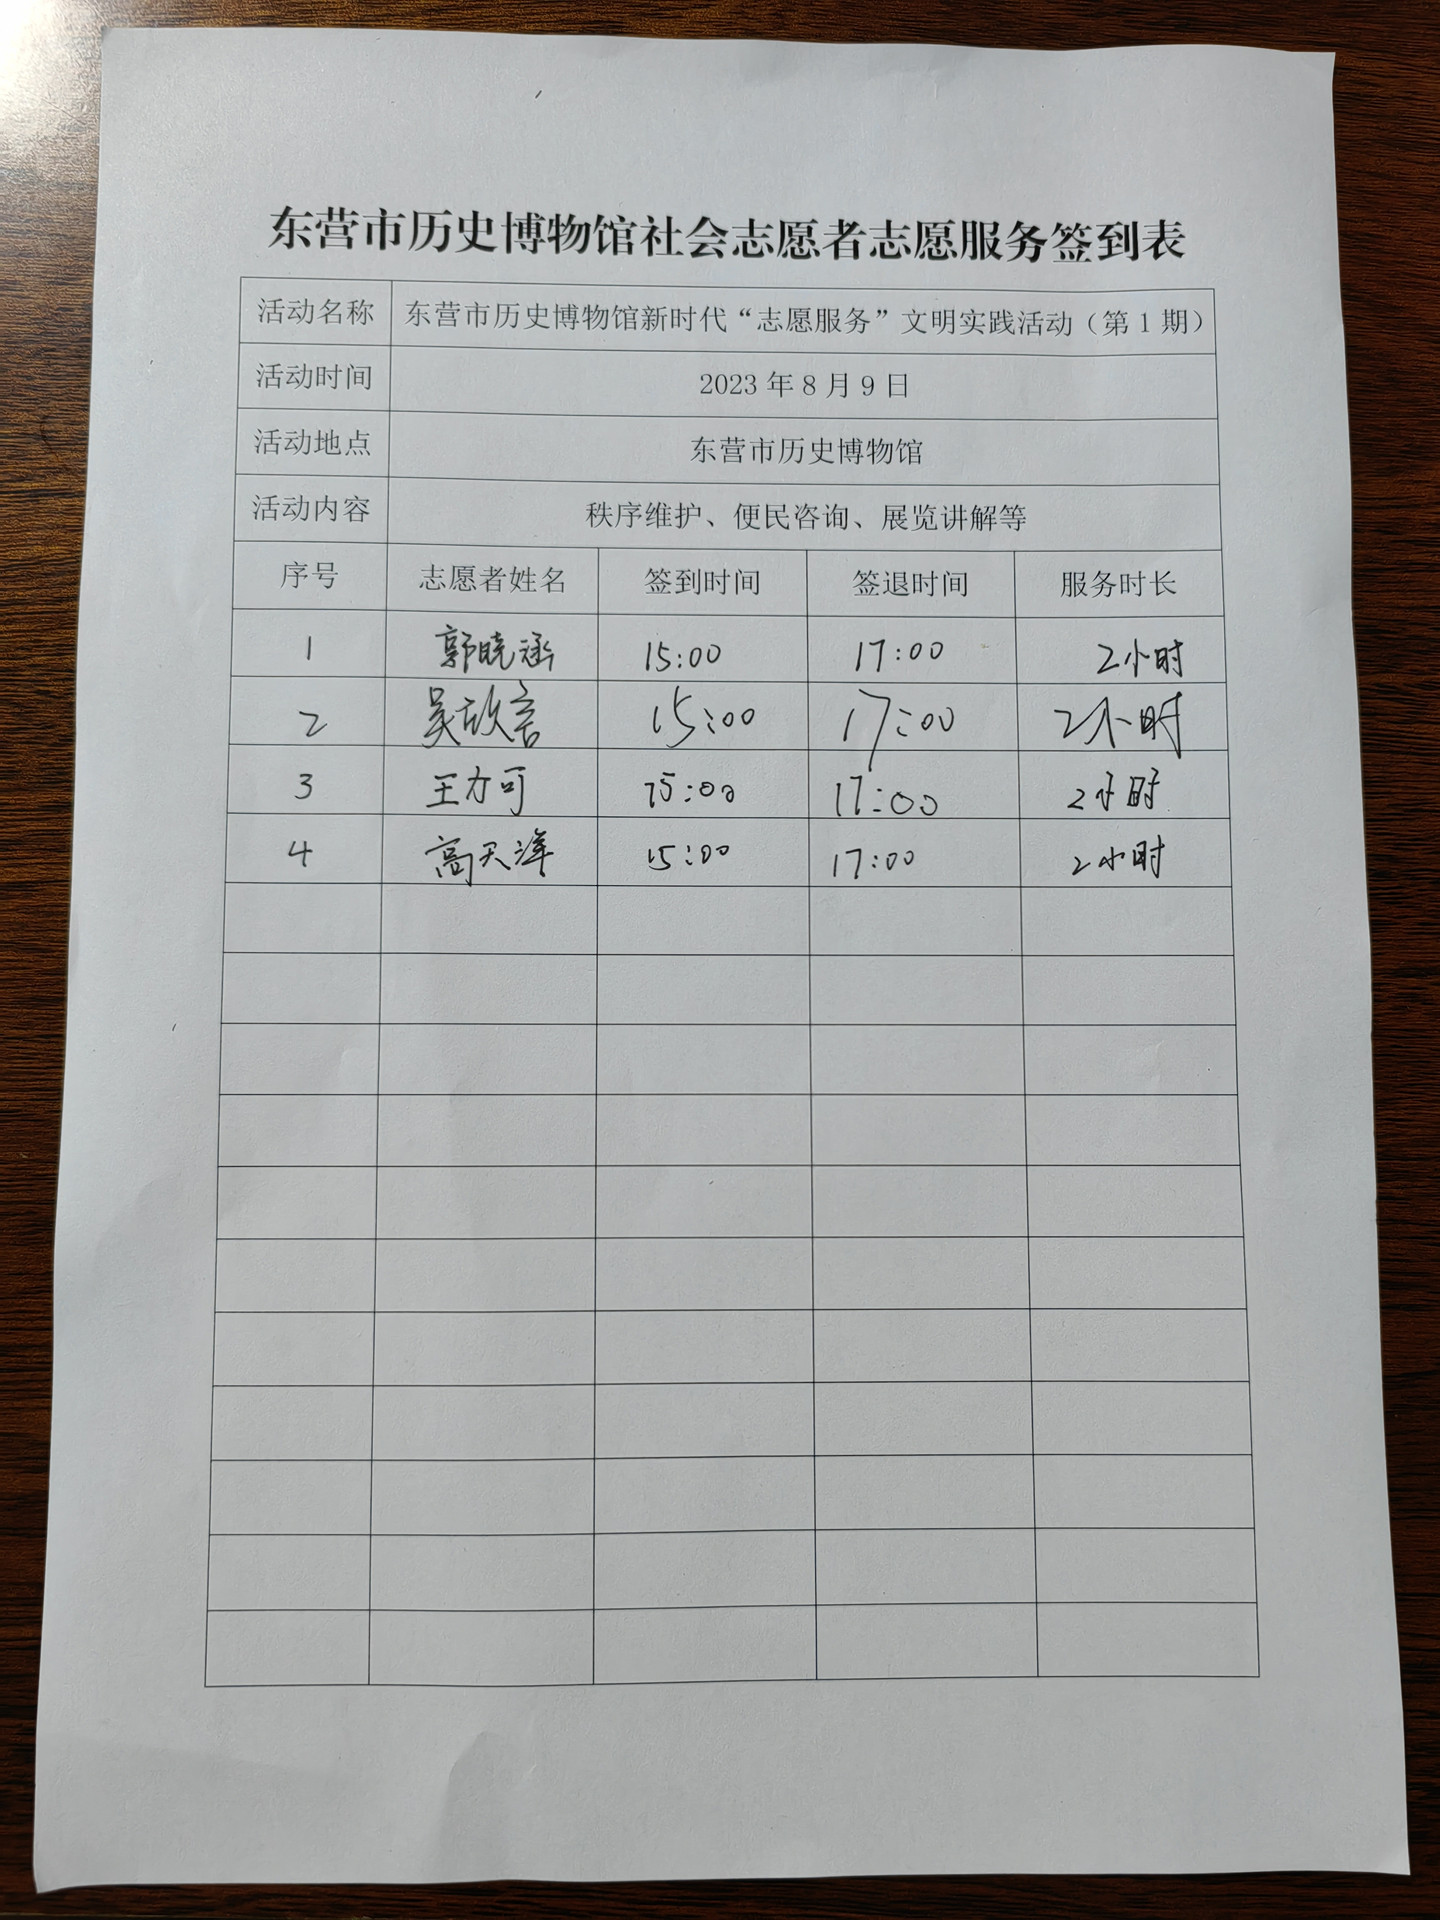 东营市历史博物馆社会志愿者志愿服务签到表
活动名称 东营市历史博物馆新时代“志愿服务”文明实践活动（第1期）
活动时间 2023年8月9日
活动地点 东营市历史博物馆
活动内容 秩序维护、便民咨询、展览讲解等
序号 志愿者姓名 签到时间 签退时间 服务时长
1 郭晓涵 15:00 17:00 2小时
2 15:00 17:00 2小时
3 王力可 15:00 17:00 2小时
4 高天泽 15:00 17:00 2小时